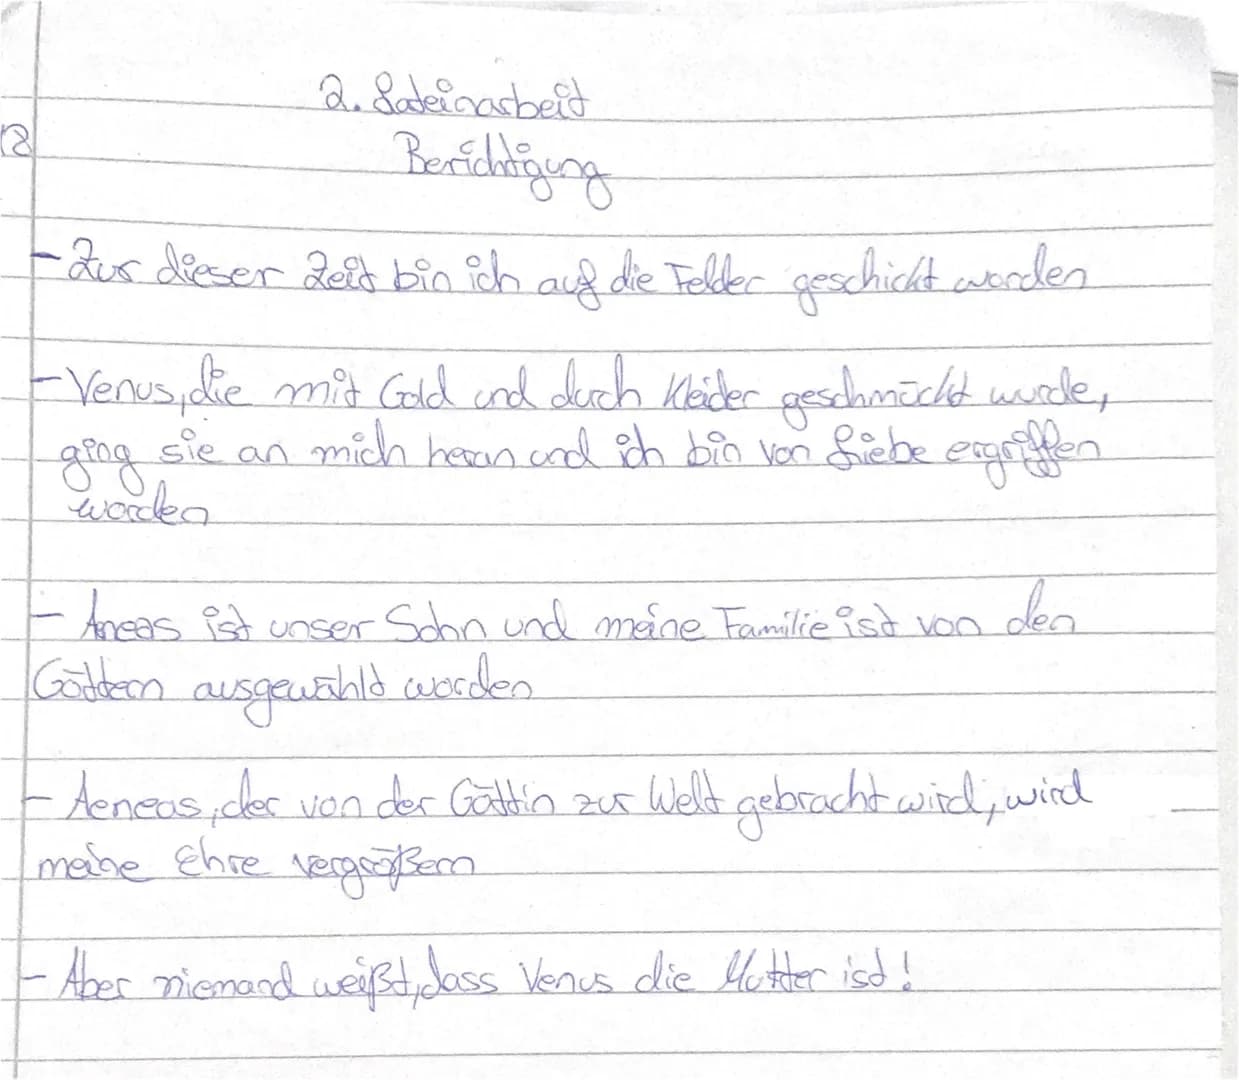 2. Lateinarbeit
Berichtigung
- Zur dieser Zeit bin ich auf die Felder geschickt worden
- Venus, die mit Gold und durch Kleider geschmückt wurde,
ging sie an mich heran und ich bin von Liebe ergriffen
worden
- Aneas ist unser Sohn und meine Familie ist von den
Göttern ausgewählt worden
- Aeneas, der von der Göttin zur Welt gebracht wird, wird
meine Ehre vergrößern
- Aber niemand weißt, dass Venus die Mutter ist!